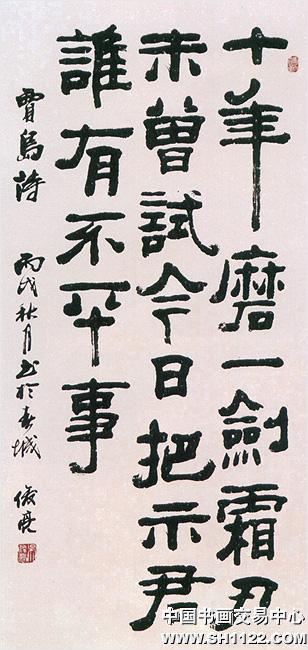 十年磨一劍霜刃
未曾試今日把示君
誰有不平事
賈島詩 丙戌秋月书於春城
中国书画交易中心
www.SH1122.com